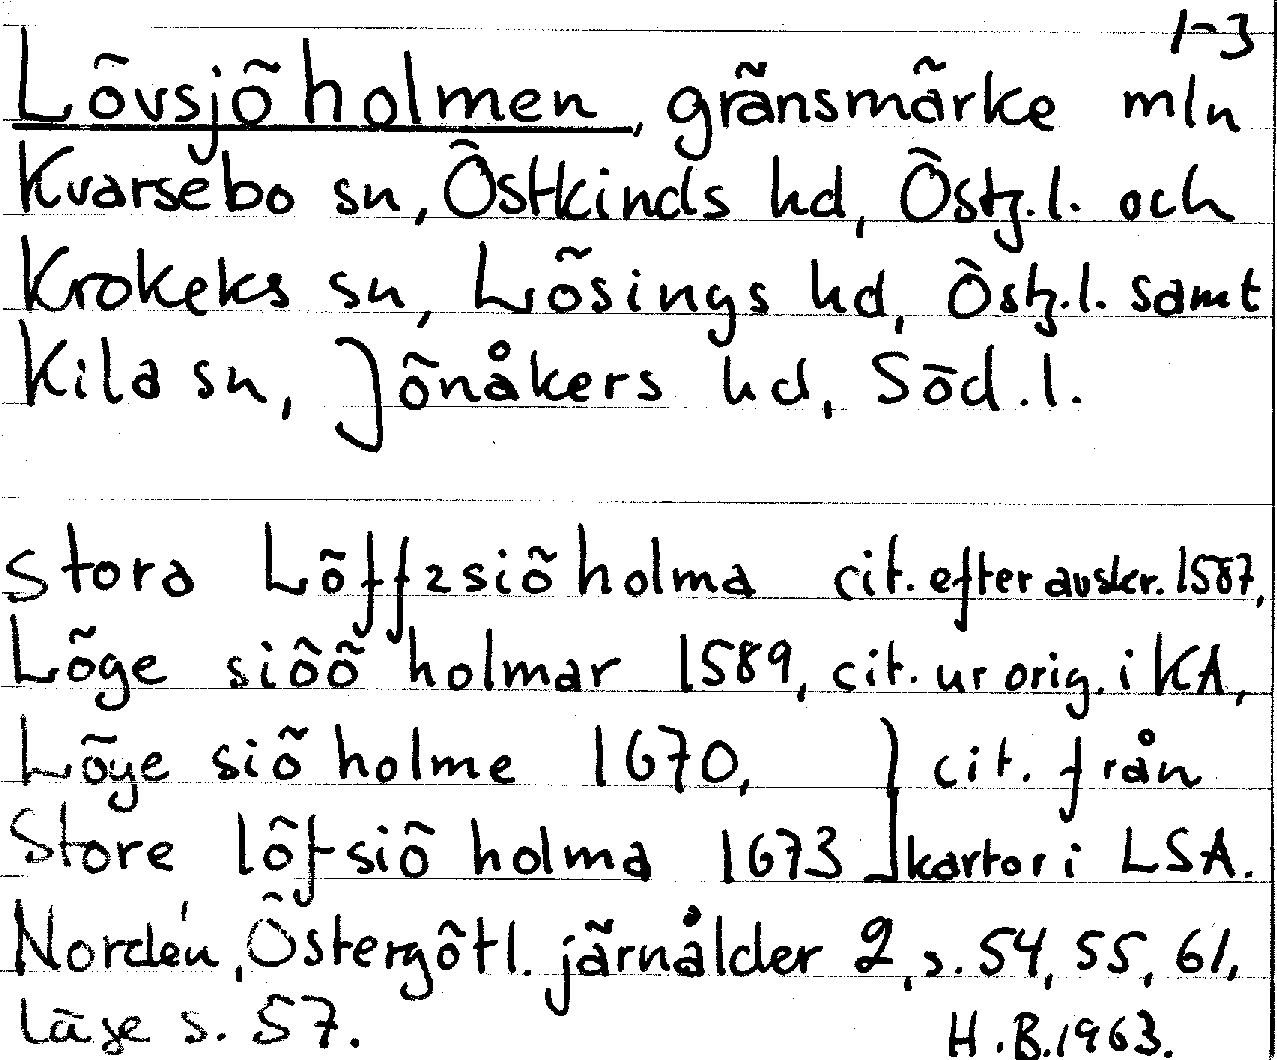 1-3
Lövsjöholmen, gränsmärke mln
Kvarsebo sn, Östkinds hd, Östg.l. och
Krokeks sn, Lösings hd, Östg.l. samt
Kila sn, Jönåkers hd, Söd.l.
Stora Löffzsiöholma cit. efter avskr. 1587,
Löge siöö holmar 1589, cit. ur orig. i KA,
Löye siö holme 1670, } cit. från
Store löfsiö holma 1673 } kartor i LSA.
Nordén, Östergötl. järnålder 2, s. 54, 55, 61,
läge s. 57.
H.B. 1963.